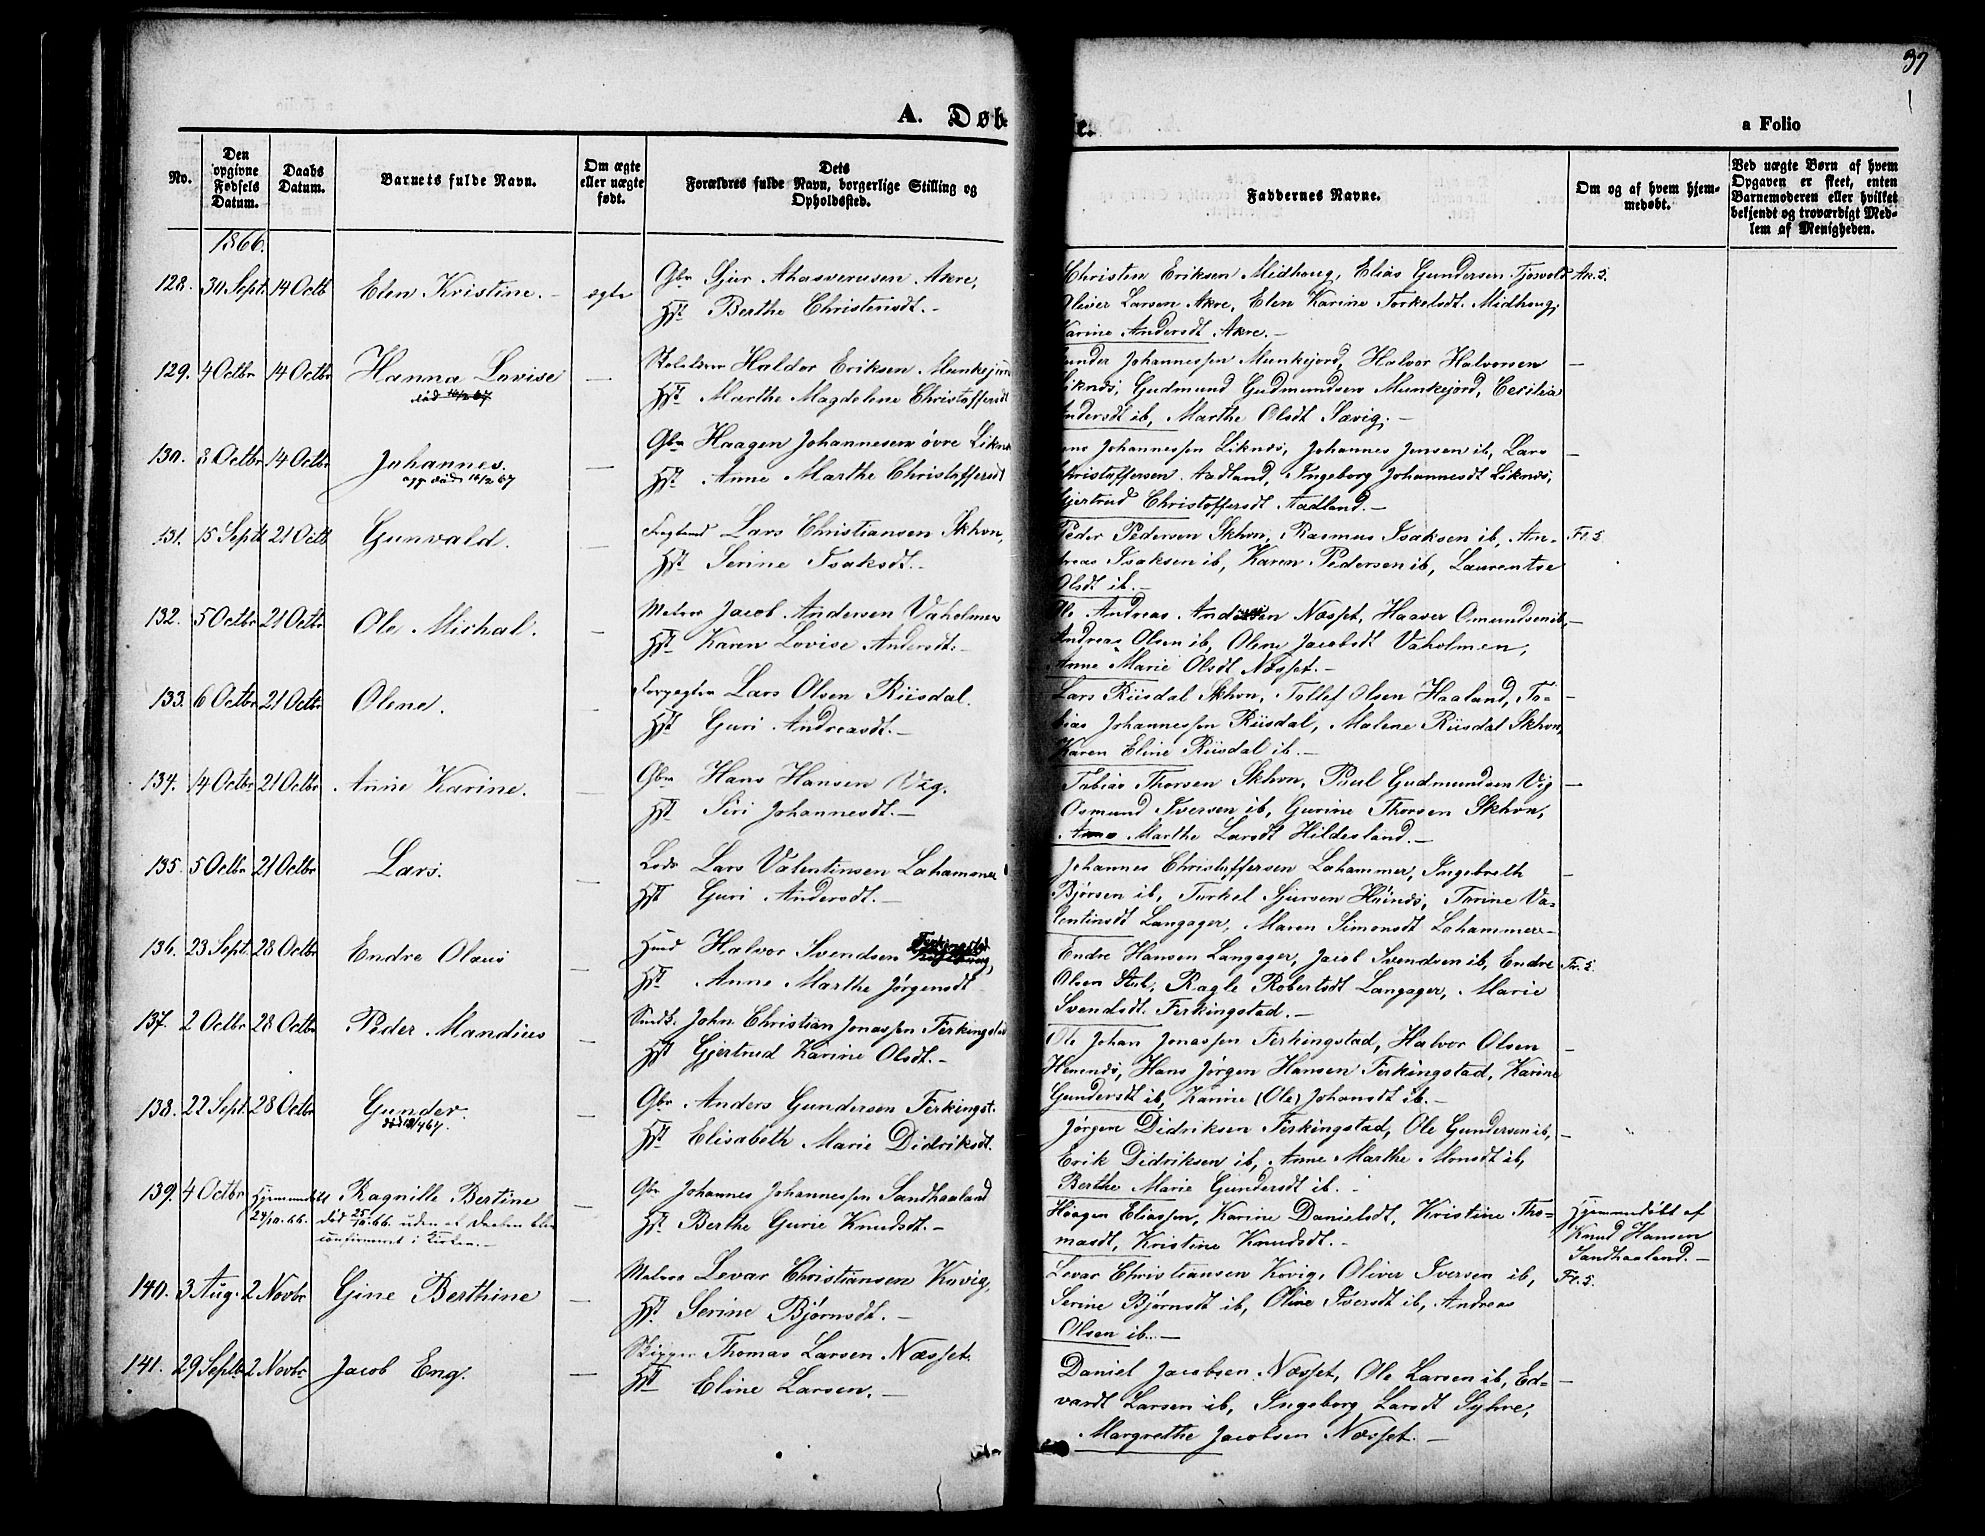 37
A. Døb
te.
a Folio
No.
Den opgivne Fødsels Datum.
Daabs Datum.
Barnets fulde Navn.
Om ægte eller uægte født.
Dets Forældres fulde Navn, borgerlige Stilling og Opholdssted.
Faddernes Navne.
Om og af hvem hjemmedøbt.
Ved uægte Børn af hvem Opgaven er skeet, enten Barnemoderen eller hvilket bekjendt og troværdigt Medlem af Menigheden.
1866.
128. 30 Sept. 14 Octb Elen Kristine. ægte Gbr Sjur Ahasverusen Akre, Christen Eriksen Midhoug, Elias Gundersen Tjosvold Ak. S.
Hst Berthe Christensdt. Oliver Larsen Akre, Elen Karine Torkelsdt. Midhoug,
Karine Andersdt Akre.
129. 4 Octbr 14 Octbr Hanna Lovise — Haldor Eriksen Munkejord Gunder Johannessen Munkejord, Halvor Halvorsen —
død Hst Marthe Magdelene Christoffersdt Liknes, Gudmund Gudmundsen Munkejord, Cecilia
Andersdt ib, Marthe Olsdt Sævig.
130. 3 Octbr 14 Octbr Johannes. — Gbr Haagen Johannesen øvre Liknes Johannessen Liknes, Johannes Jensen ib, Lars —
død 16/2 67 Hst Anne Marthe Christoffersdt Christoffersen Aadland, Ingeborg Johannesdt Liknes,
Gjertrud Christoffersdt Aadland.
131. 15 Septb 21 Octb Gunvald. — Lars Christiansen Skhvn, Peder Pedersen Skhvn, Rasmus Isaksen ib, An- Fr. S.
Hst Serine Isaksdt. dreas Isaksen ib, Karen Pedersen ib, Laurentse
Olsdt ib.
132. 5 Octbr 21 Octbr Ole Michal. — Matros Jacob Andersen Vaholmen Ole Andreas Andersen Næsset, Haaver Omundsen ib, —
Hst Karen Lovise Andersdt. Andreas Olsen ib, Olene Jacobsdt Vaholmen,
Anne Marie Olsdt Næsset.
133. 6 Octbr 21 Octbr Olene. — Forpagter Lars Olsen Riisdal. Lars Riisdal Skhvn, Tollef Olsen Haaland, To- —
Hst Guri Andreasdt. bias Johannessen Riisdal, Malene Riisdal Skhvn,
Karen Eline Riisdal ib.
134. 14 Octbr 21 Octbr Anne Karine. Gbr Hans Hansen Vig. Tobias Thorsen Skhvn, Paul Gudmundsen Vig —
Hst Siri Johannesdt. Osmund Iversen ib, Gurine Thorsen Skhvn,
Anne Marthe Larsdt Hildesland.
135. 5 Octbr 21 Octbr Lars. — Lods Lars Valentinsen Lahammer Johannes Christoffersen Lahammer, Ingebreth —
Hst Guri Andersdt. Bjørsen ib, Torkel Sjursen Høines, Torine Va-
lentinsdt Langager, Maren Simonsdt Lahammer
136. 23 Sept. 28 Octbr Endre Olaus — Hmd Halvor Svendsen Endre Hansen Langager, Jacob Svendsen ib, Endre Fr. S.
Hst Anne Marthe Jørgensdt Olsen Stol, Ragle Robertsdt Langager, Marie
Svendsdt. Ferkingstad.
137. 2 Octbr 28 Octbr Peder Mandius — John Christian Jonassen Ferkingstad Ole Johan Jonassen Ferkingstad, Halvor Olsen —
Hst Gjertrud Karine Olsdt. Hemnes, Hans Jørgen Hansen Ferkingstad, Karine
Gundersdt ib, Karine (Ole) Johansdt ib.
138. 22 Sept. 28 Octbr Gunder. — Gbr Anders Gundersen Ferkingst. Jørgen Didriksen Ferkingstad, Ole Gundersen ib, —
død 18/4 67. Hst Elisabeth Marie Didriksdt. Erik Didriksen ib, Anne Marthe Monsdt ib,
Berthe Marie Gundersdt ib.
139. 4 Octbr Hjemmedøbt 24/10.66. Ragnille Bertine — Gbr Johannes Johannessen Sandhaaland Haagen Eliassen, Karine Danielsdt, Kristine Tho- Hjemmedøbt af
død 25/10.66. uden at Daaben blev Hst Berthe Gurie Knudsdt. masdt, Kristine Knudsdt. Knud Hansen
confirmeret i Kirken. Sandhaaland.
140. 3 Aug. 2 Novbr Gine Berthine — Matros Levar Christiansen Kovig, Levar Christiansen Kovig, Oliver Iversen ib, Fr. S.
Hst. Serine Bjørnsdt. Serine Bjørnsdt ib, Oline Iversdt ib, Andreas
Olsen ib.
141. 29 Septb 2 Novbr Jacob Eng. — Skipper Thomas Larsen Næsset. Daniel Jacobsen Næsset, Ole Larsen ib, Ed- —
Hst Eline Larsen. vardt Larsen ib, Ingeborg Larsdt Syhre,
Margrethe Jacobsen Næsset.